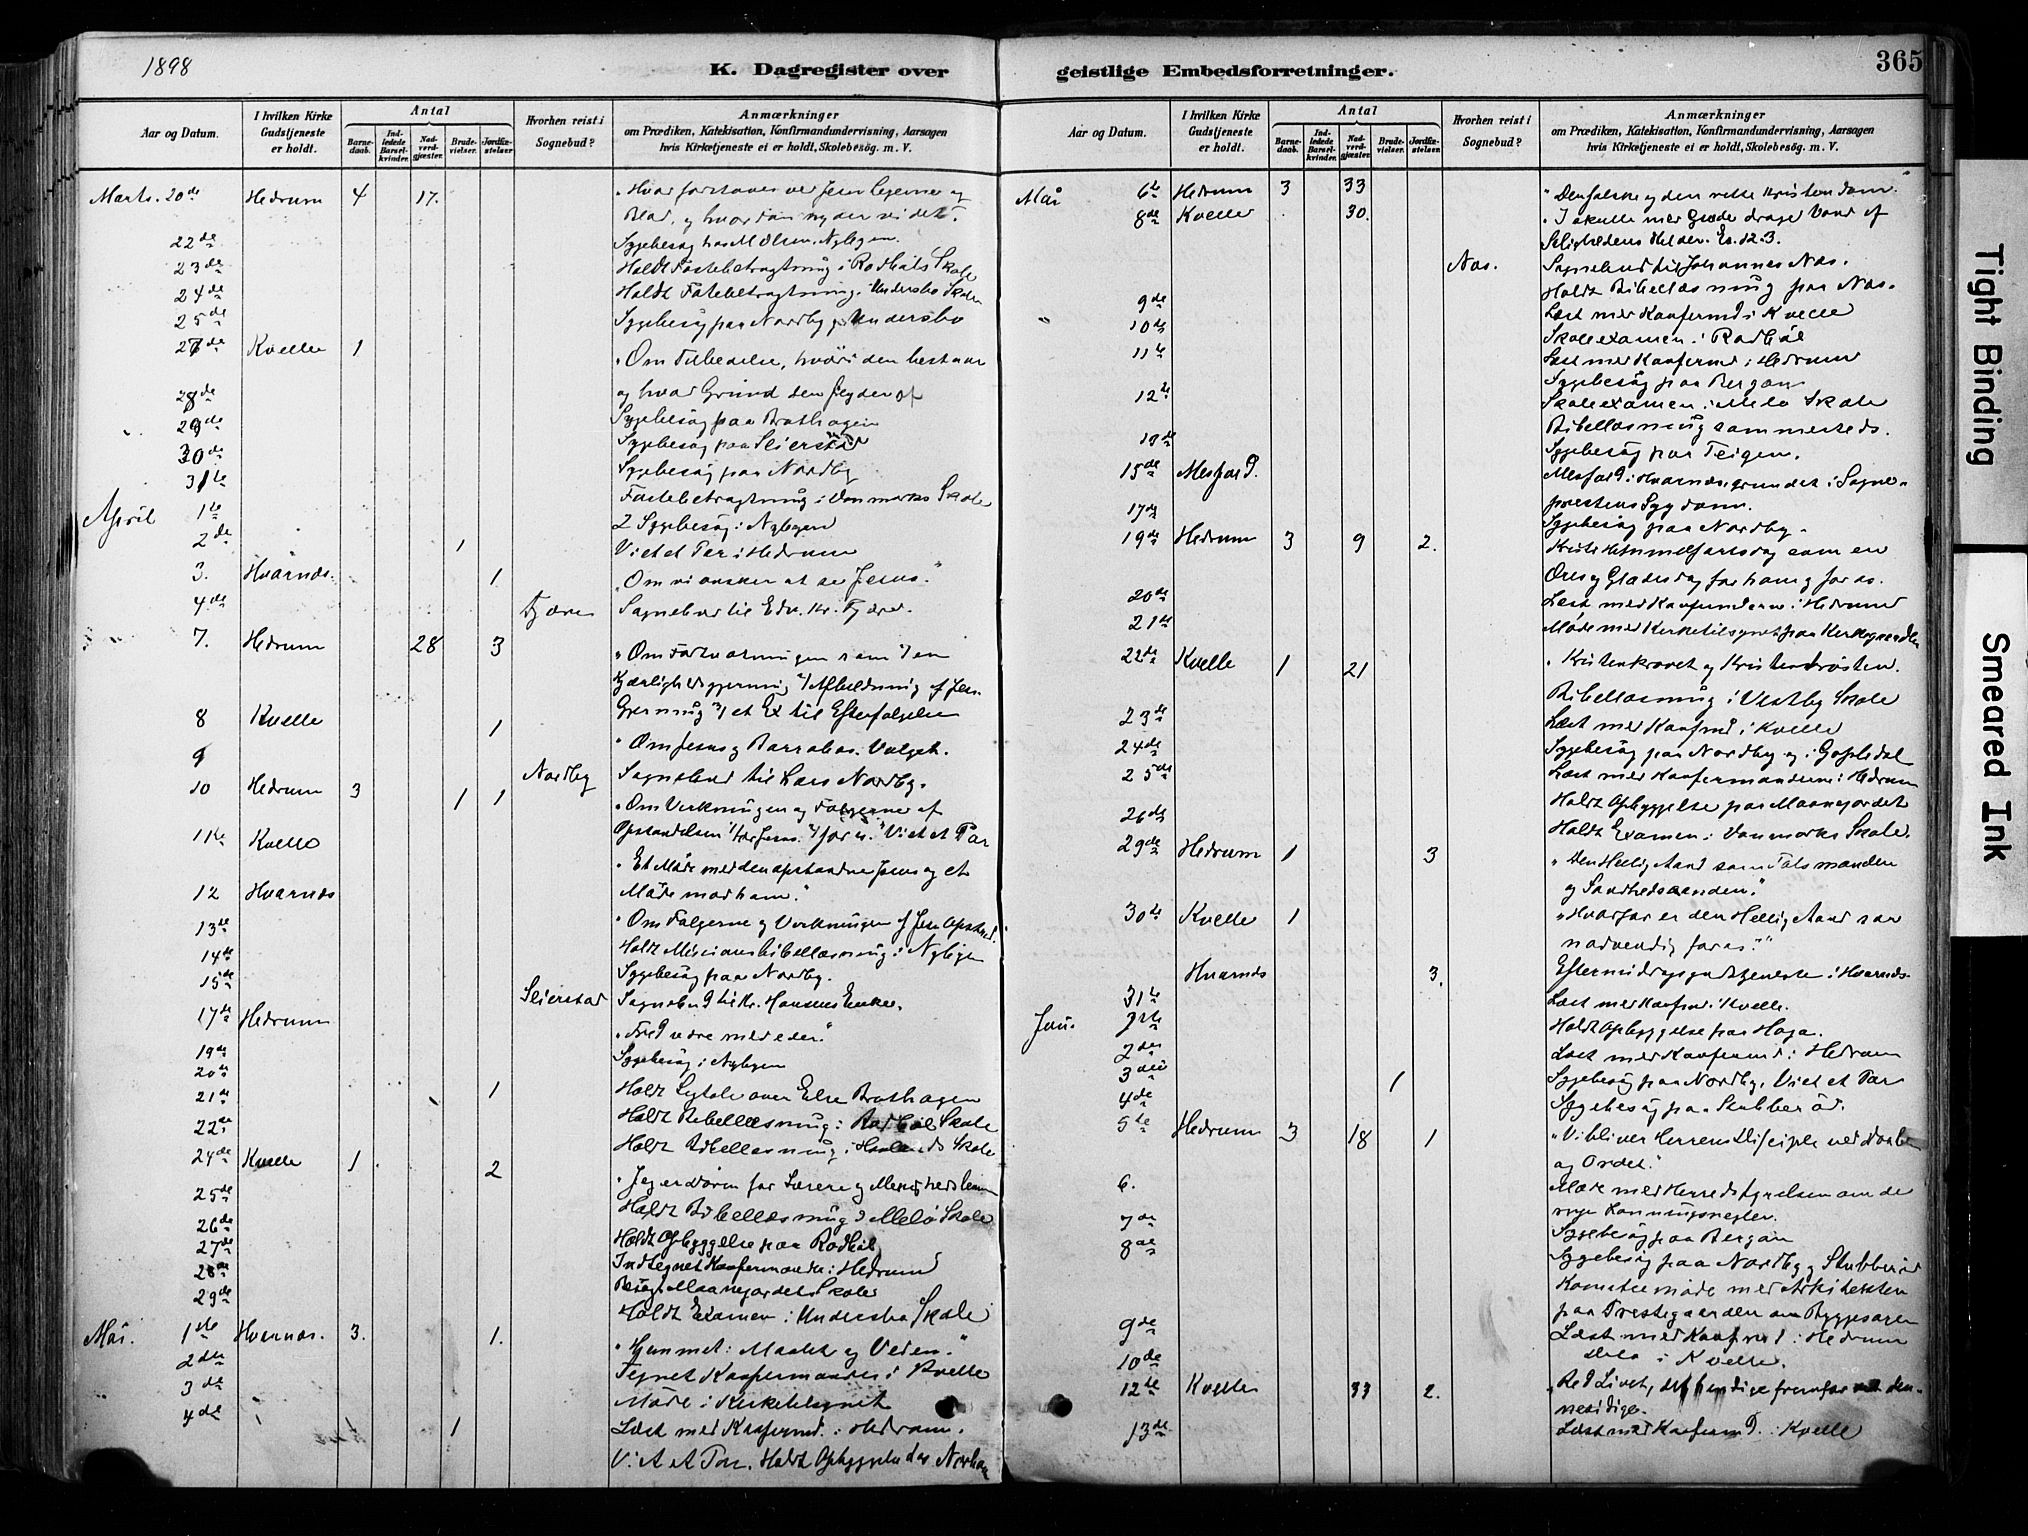 1898
K. Dagregister over geistlige Embedsforretninger.
365
Aar og Datum.
I hvilken Kirke Gudstjeneste er holdt.
Antal
Barnedaab.
Indledede Barselkvinder.
Nadverdgjæster.
Brudevielser.
Jordfæstelser.
Hvorhen reist i Sognebud?
Anmærkninger
om Prædiken, Katekisation, Konfirmandundervisning, Aarsagen
hvis Kirketjeneste ei er holdt, Skolebesøg. m. V.
Marts. 20de Hedrum 4 17.
Blod, og hvordan nyder vi det".
22de Sygebesøg hos M Olsen, Nylegen.
23de Holdt Fastebetragtning i Rødbøls Skole
24de Holdt Fastebetragtning i Undersbo Skole
25de Sygebesøg paa Nordby og Undersbo
27de Kvelle 1 "Om Tilbedelse, hvori den bestaar
og hvad Grund den
28de Sygebesøg paa Brothagen
29de Sygebesøg paa Seierstad
30de Sygebesøg paa Nordby
31te Fastebetragtning i Danmarks Skole
April 1te 2 Sygebesøg i Nylegen
2de 1 Viet et Par i Hedrum
3. Hvarnæs. 1 "Om vi ønsker at se Jesus."
4de Fjære Sognebud til Edv. Kr. Fjære.
7. Hedrum 28 3 "Om Fodtvætningen som 1/ en
Kjærlighedsgjerning 2/ Afbildning af Jesu
Gjerning 3/ et Ex til Efterfølgelse
8 Kvelle 1 "Om Jesus og Barrabas. Valget.
9 Nordby Sognebud til Lars Nordby.
10 Hedrum 3 1 1 "Om Virkningen og Følgerne af
Opstandelsen 1/ for Jesus. 2/ for os." Viet et Par
11te Kvelle "Et Møde med den opstandne Jesus og et
Møde mod ham."
12 Hvarnæs "Om Følgerne og Virkningen af Jesu Opstand.
13de Holdt Missionsbibellæsning i Nylegen
14de Sygebesøg paa Nordby.
15de Seierstad Sognebud til Kr. Hansens Enke.
17de Hedrum "Fred være med eder."
19de Sygebesøg i Nylegen
20de
21de 1 Holdt Ligtale over Else Brothagen
22de Holdt Bibellæsning i Rødbøl Skole
Holdt Bibellæsning i Skole
24de Kvelle 1 2 "Jeg er døren for Lærere og
25de Holdt Bibellæsning i Melø Skole
26de Holdt Opbyggelse paa Rødbøl
27de Indtegnet Konfirmander i Hedrum
28de Besøgt Maanejordet Skole
29de Holdt Examen i Undersbo Skole
Mai. 1ste Hvarnæs. 3. 1. "Hjemmet: Maalet og Veien."
2den Tegnet Konfirmander i Kvelle
3de Møde i Kirketilsynet
4de 1 Læst med Konfirmd. i Hedrum.
Viet et Par. Holdt Opbyggelse
Aar og Datum.
I hvilken Kirke Gudstjeneste er holdt.
Antal
Barnedaab.
Indledede Barselkvinder.
Nadverdgjæster.
Brudevielser.
Jordfæstelser
Hvorhen reist i Sognebud?
Anmærkninger
om Prædiken, Katekisation, Konfirmandundervisning, Aarsagen
hvis Kirketjeneste ei er holdt, Skolebesøg. m. V.
Mai 6te Hedrum 3 33 "Den falske og den rette Kristendom."
8de Kvelle 30. "I skulle med Glæde drage Vand af
Salighedens Kilder. Es. 12.3.
Næs. Sognebud til Johannes Næs.
Holdt Bibellæsning paa Næs.
9de Læst med Konfirmd i Kvelle
10de Skoleexamen i Rødbøl
11te Læst med Konfirmd i Hedrum
Sygebesøg paa Bergan
12te Skoleexamen i Melø Skole
Bibellæsning sammesteds.
Sygebesøg paa Teigen.
15de Messfald. Messfald i Hvarnæs grundet i Sogne-
prestens Sygdom.
17de Sygebesøg paa Nordby.
19de Hedrum 3 9 2. Kristi Himmelfartsdag som en
Æres og Glædesdag for ham og for os.
20de Læst med Konfirmderne i Hedrum
21de Møde med Kirketilsynet paa
22de Kvelle 1 21 "Kristenkravet og Kristentrøsten.
Bibellæsning i Vestby Skole
23de Læst med Konfmd i Kvelle
24de Sygebesøg paa Nordby og i Gopledal
25de Læst med Konfirmanderne i Hedrum
Holdt Opbyggelse paa Maanejordet
26de Holdt Examen i Danmarks Skole.
29de Hedrum 1 3 "Den Hellig Aand som Talsmanden
og Sandhedsaanden."
30te Kvelle 1 "Hvorfor er den Hellig Aand saa
nødvendig for os."
Hvarnæs 3. Eftermiddagsgudstjeneste i Hvarnæs.
31te Læst med Konfmd. i Kvelle.
Juni. 1ste Holdt Opbyggelse paa Haga.
2den Læst med Konfirmd i Hedrum
3die 1 Sygebesøg paa Nordby. Viet et Par
4de Sygebesøg paa Stubberød.
5te Hedrum 3 18 1 "Vi bliver Herrens Disciple ved Daaben
og Ordet."
6. Møde med Herredstyrelsen om de
nye
7de Sygebesøg paa Bergan
8de Sygebesøg paa Nordby og Stubberød
Komitemøde med Arkitekten
paa Prestegaarden om Byggesagen
9de Læst med Konfirmd i Hedrum
10de Do i Kvelle.
12te Kvelle 33 2.
13de Læst med Konfirmd. i Kvelle
Tight Binding
Smeared Ink